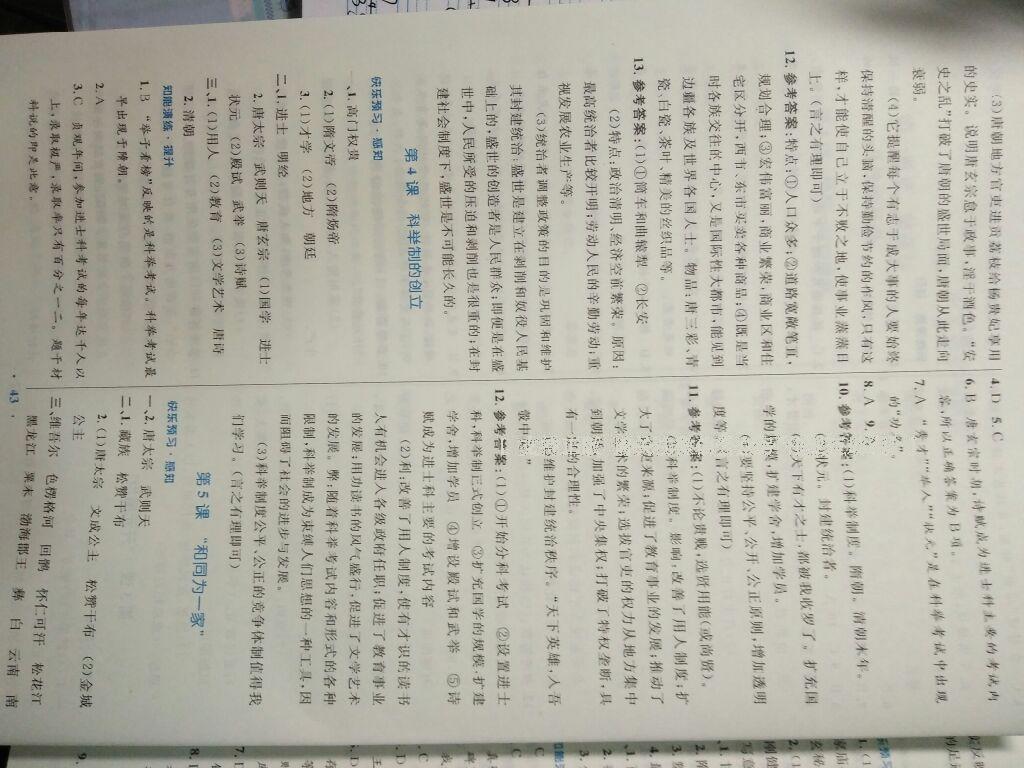 (3)唐朝地方官吏进贡荔枝给杨贵妃享用
的史实。说明唐玄宗怠于政事,淫于酒色。“安
史之乱”打破了唐朝的盛世局面,唐朝从此走向
衰弱。
(4)它提醒每个有志于成大事的人要始终
保持清醒的头脑,保持勤俭节约的作风,只有这
样,才能使自己立于不败之地,使事业蒸蒸日
上。(言之有理即可)
12. 参考答案:特点:①人口众多;②道路宽敞笔直,
规划合理;③宏伟富丽,商业繁荣,商业区和住
宅区分开;西市、东市买卖各种商品;④既是当
时各族交往的中心,又是国际性大都市,能见到
边疆各族及世界各国人士。物品:唐三彩、青
瓷、白瓷、茶叶、精美的丝织品等。
13. 参考答案:(1)①筒车和曲辕犁 ②长安
(2)特点:政治清明、经济空前繁荣。原因:
最高统治者比较开明;劳动人民的辛勤劳动;重
视发展农业生产等。
(3)统治者调整政策的目的是巩固和维护
其封建统治;盛世是建立在剥削和奴役人民基
础上的,盛世的创造者是人民群众;即便是在盛
世中,人民所受的压迫和剥削也是很重的;在封
建社会制度下,盛世是不可能长久的。
第4课 科举制的创立
快乐预习·感知
一、1. 高门权贵
2. (1)隋文帝 (2)隋炀帝
3. (1)才学 (2)地方 朝廷
二、1. 进士 明经
2. 唐太宗 武则天 唐玄宗 (1)国学 进士
状元 (2)殿试 武举 (3)诗赋
三、1. (1)用人 (2)教育 (3)文学艺术 唐诗
2. 清朝
知能演练·提升
1. B “举子看榜”反映的是科举考试。科举考试最
早出现于隋朝。
2. A
3. C 贞观年间,参加进士科考试的每年达千人以
上,录取极严,录取率只有百分之一二。题干材
料说的即是此意。
4. D 5. C
6. B 唐玄宗时期,诗赋成为进士科主要的考试内
容,所以正确答案为B项。
7. A “秀才”“举人”“状元”是在科举考试中出现
的“功名”。
8. A 9.
10. 参考答案:(1)科举制度。隋朝。清朝末年。
天下有才之士,都被我收罗了。扩充国
学的规模,扩建学舍,增加学员。
状元。封建统治者。
要坚持公平、公开、公正原则,增加透明
度等。(言之有理即可)
11. 参考答案:(1)不论贵贱,选贤用能(或尚贤)。
科举制度。影响:改善了用人制度;扩
大了官吏来源;促进了教育事业的发展;推动了
文学艺术的繁荣;选拔官吏的权力从地方集中
到朝廷,加强了中央集权;打破了特权垄断,具
有一定的合理性。
维护封建统治秩序。“天下英雄,入吾
彀中”
12. 参考答案:(1)①开始分科考试 ②设置进士
科,科举制正式创立 ③扩充国学的规模,扩建
学舍,增加学员 ④增设殿试和武举 ⑤诗
赋成为进士科主要的考试内容
(2)利:改善了用人制度,使有才识的读书
人有机会进入各级政府任职;促进了教育事业
的发展;用功读书的风气盛行,促进了文学艺术
的发展。弊:随着科举考试内容和形式的各种
限制,科举制成为束缚人们思想的一种工具,因
而阻碍了社会的进步与发展。
(3)科举制度公平、公正的竞争体制值得我
们学习。(言之有理即可)
第5课 “和同为一家”
快乐预习·感知
一、2. 唐太宗 武则天
二、1. 藏族 松赞干布
2. (1)唐太宗 文成公主 松赞干布 (2)金城
公主
三、维吾尔 色楞格河 回鹘 怀仁可汗 松花江
黑龙江 粟末 渤海郡王 彝 白 云南 南
· 43 ·